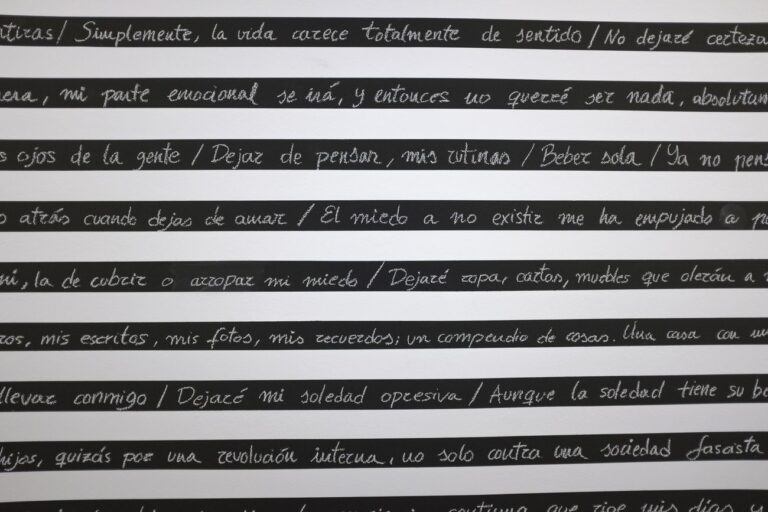 ntiras / Simplemente, la vida carece totalmente de sentido / No dejaré certeza
nera, mi parte emocional se irá, y entonces no querré ser nada, absolutam
s ojos de la gente / Dejar de pensar, mis rutinas / Beber sola / Ya no pens
o atrás cuando dejas de amar / El miedo a no existir me ha empujado a p
mi, la de cubrir o arropar mi miedo / Dejaré ropa, cartas, muebles que olerán a
ros, mis escritos, mis fotos, mis recuerdos; un compendio de cosas. Una casa con un
llevar conmigo / Dejaré mi soledad opresiva / Aunque la soledad tiene su be
hijos, quizás por una revolución interna, no solo contra una sociedad fascista
continua que rige mis días y